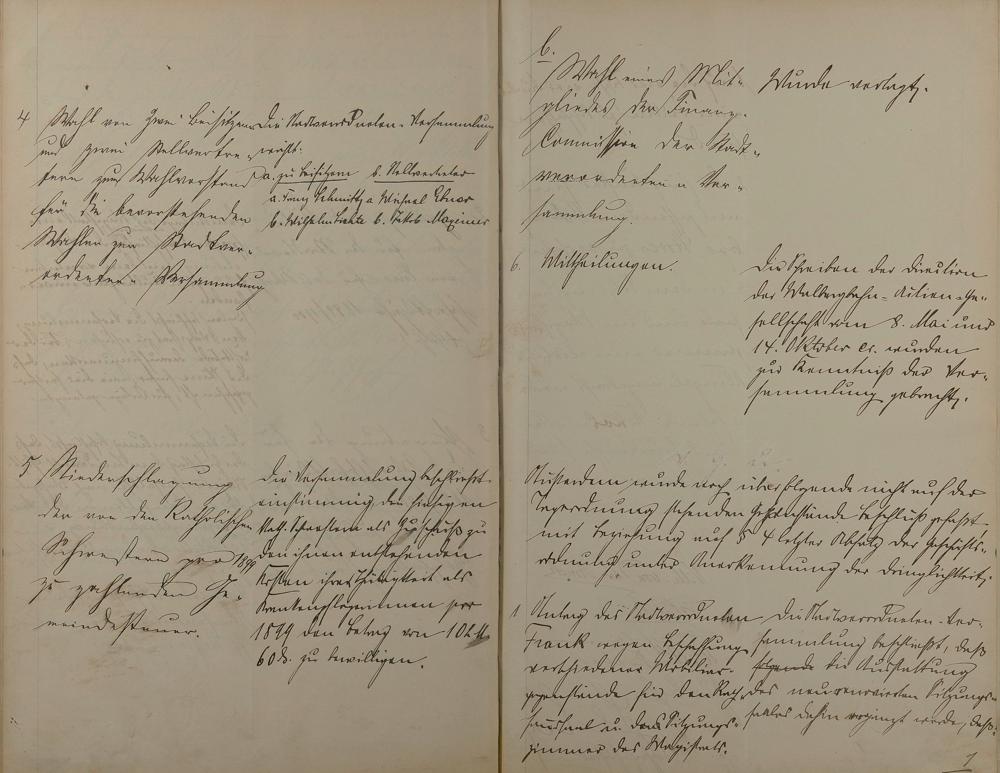 4 Wahl von zwei Beisitzern
und zwei Stellvertre-
tern zum Wahlvorstand
für die bevorstehenden
Wahlen zur Stadtver-
ordneten- Versammlung
Die Stadtverordneten-Versammlung
wählt:
a. zu Beisitzern b. Stellvertreter
a. Franz Schmitz a Michael Ebner
b. Wilhelm b. Jakob Maximer
5 Niederschlagung
der von den Katholischen
Schwestern pro 1899
zu zahlenden Ge-
meindesteuer.
Die Versammlung beschließt
einstimmig, den hiesigen
Kath. Schwestern als Zuschuß zu
den ihnen entstehenden
Kosten ihrer Thätigkeit als
Krankenpflegerinnen pro
1899 den Betrag von 102 M
60 d. zu bewilligen.
b.
Wahl eines Mit-
gliedes der Finanz-
Commission der Stadt-
verordneten- Ver-
sammlung.
Wurde vertagt.
6. Mittheilungen.
Die Schreiben der Direction
der Malbergbahn-Actien-Ge-
sellschaft vom 8. Mai und
14. Oktober cr. wurden
zur Kenntniß der Ver-
sammlung gebracht.
Ausserdem wurde noch über folgende nicht auf der
Tagesordnung stehenden Gegenstände Beschluß gefasst
mit Beziehung auf § 4 letzter Absatz der Geschäfts-
ordnung unter Anerkennung der Dringlichkeit.
1 Antrag des Stadtverordneten
Frank wegen Beschaffung
verschiedener Mobiliar-
gegenstände für den Rath-
haussaal u. das Sitzungs-
zimmer des Magistrats.
Die Stadtverordneten-Ver-
sammlung beschließt, daß
folgende die Ausstattung
des neu renovierten Sitzungs-
saales dahin ergänzt werde, daß
7